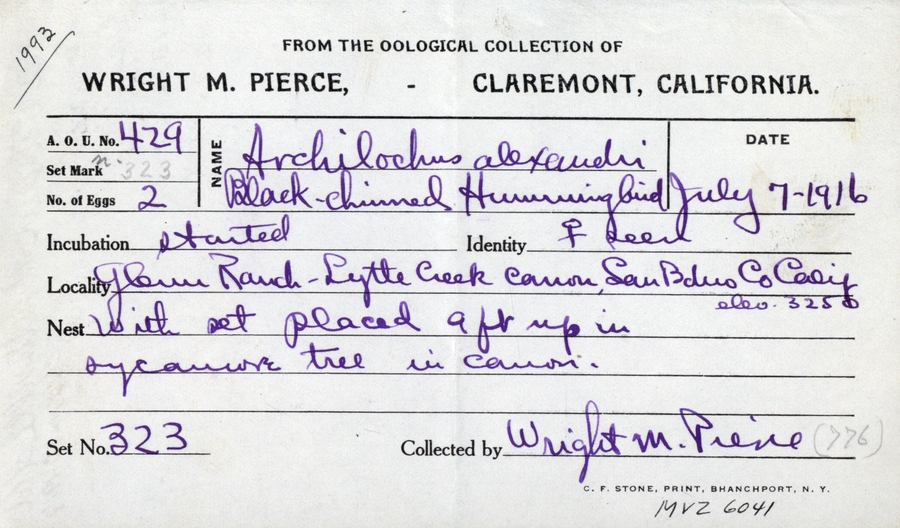 1993
FROM THE OOLOGICAL COLLECTION OF
WRIGHT M. PIERCE, - CLAREMONT, CALIFORNIA.
A. O. U. No. 429
Set Mark n. 323
No. of Eggs 2
NAME
Archilochus alexandri
Black-chinned Hummingbird
DATE
July 7-1916
Incubation started
Identity ♀ seen
Locality Glenn Ranch - Lytle Creek canon, San Bdno Co Calif
elev. 3250
Nest With set placed 9 ft up in
sycamore tree in canon.
Set No. 323
Collected by Wright M. Pierce (776)
C. F. STONE, PRINT, BHANCHPORT, N. Y.
MVZ 6041